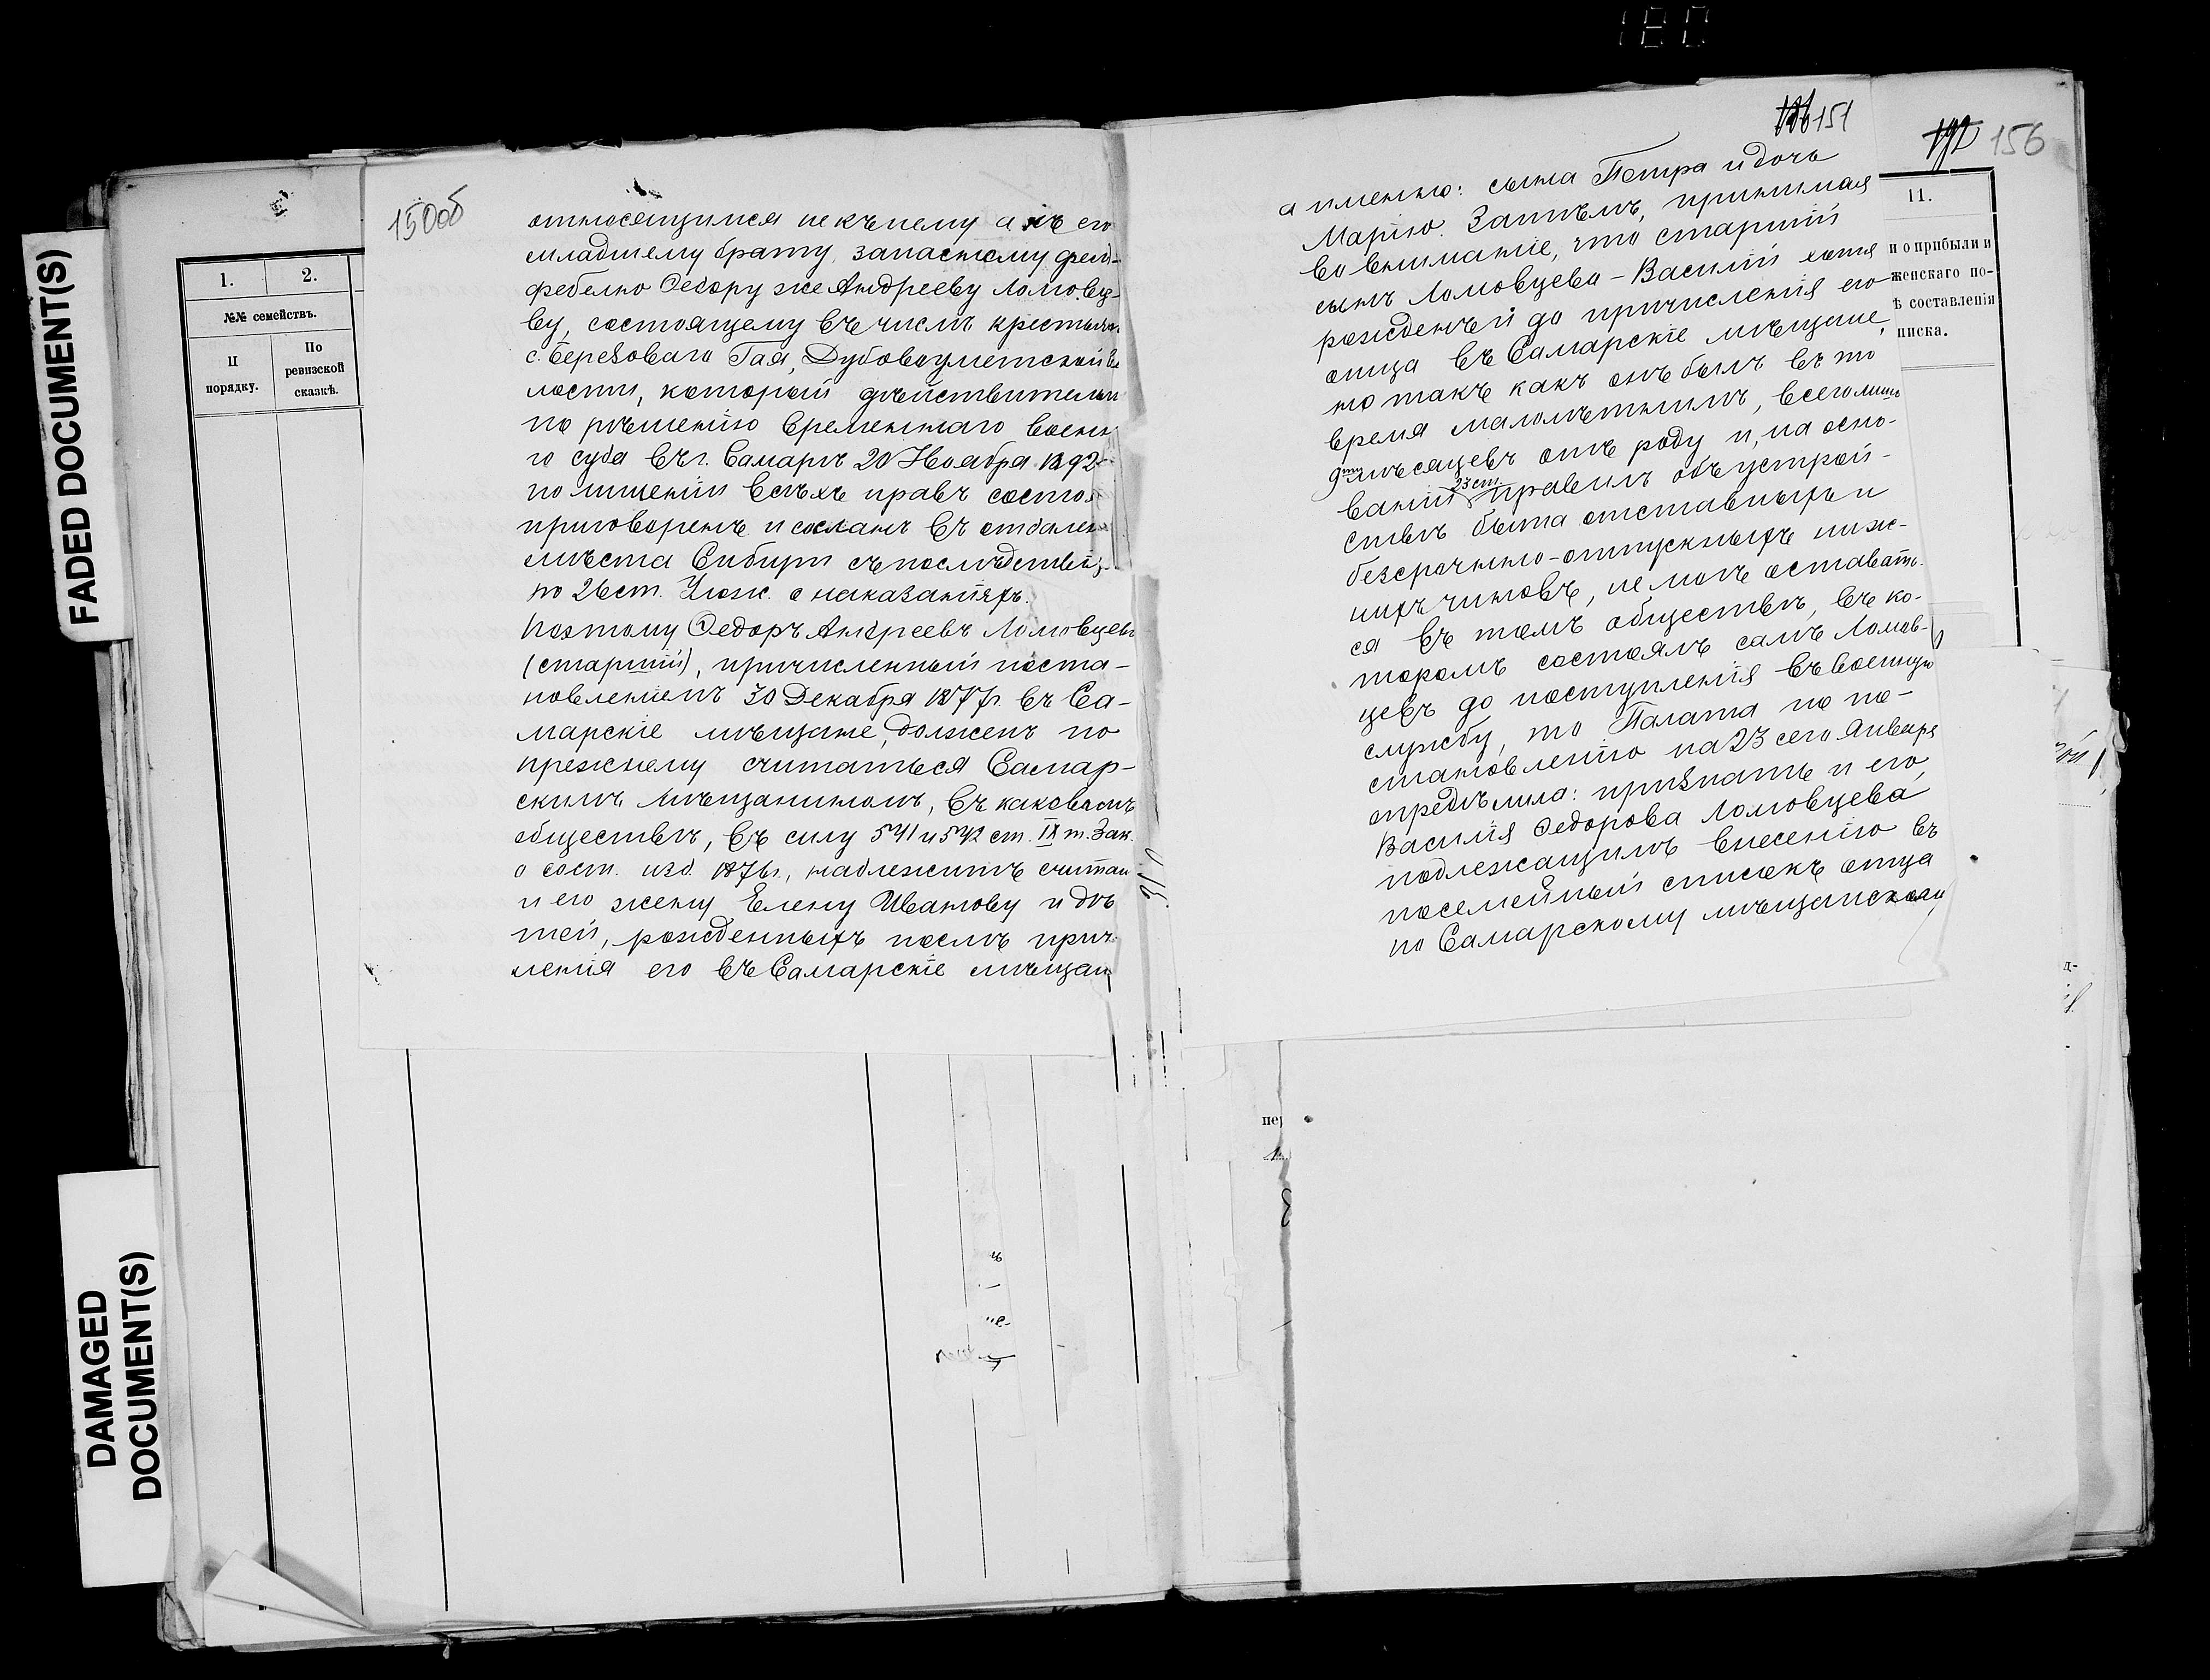 180
FADED DOCUMENT(S)
DAMAGED
DOCUMENT(S)
1.
2.
№№ семействъ.
П
порядку.
По
ревизской
сказкѣ.
150об
относящимся не къ нему а къ его
младшему брату, запасному фельд-
фебелю Ѳедору же Андрееву Ломовце-
ву, состоящему въ числѣ крестьян
с. Березоваго Гая, Дубовоуметской Во
лости, который дѣйствительн
по рѣшенію временнаго военн
го суда въ г. Самарѣ 20 Ноября 1892
по лишеніи всѣхъ правъ состоя
приговоренъ и сосланъ въ отдален
мѣста Сибири съ послѣдствія
по 26 ст. Улож. о наказаніяхъ.
Поэтому Ѳедоръ Андреевъ Ломовцевъ
(старшій), причисленный поста-
новленіемъ 30 Декабря 1877г. въ Са-
марскіе мѣщане, долженъ по
прежнему считаться Самар-
скимъ мѣщаниномъ, въ каковомъ
обществѣ, въ силу 541 и 542 ст. IX т. Зак.
о сост. изд. 1876г., надлежитъ считат
и его жену Елену Иванову и дѣ
тей, рожденныхъ послѣ прич
ленія его въ Самарскіе мѣщан
151
156
11.
и о прибыли и
женскаго по-
ѣ составленія
писка.
а именно: сына Петра и дочь
Марію. Затѣмъ, принимая
во вниманіе, что старшій
сынъ Ломовцева - Василій хотя
рожденъ и до причисленія его
отца въ Самарскіе мѣщане,
но такъ какъ онъ былъ въ то
время малолѣтнимъ, всего лишь
9ти мѣсяцевъ отъ роду и, на осно-
ваніи 23 ст. правилъ объ устрой-
ствѣ быта отставныхъ и
безсрочно-отпускныхъ ниж-
нихъ чиновъ, не могъ оставать-
ся въ томъ обществѣ, въ ко-
торомъ состоялъ самъ Ломов-
цевъ до поступленія въ военную
службу, то Палата по по-
становленію на 23 сего Января
опредѣлила: признать и его,
Василія Ѳедорова Ломовцева
подлежащимъ внесенію въ
посемейный списокъ отца
по Самарскому мѣщанском
пе